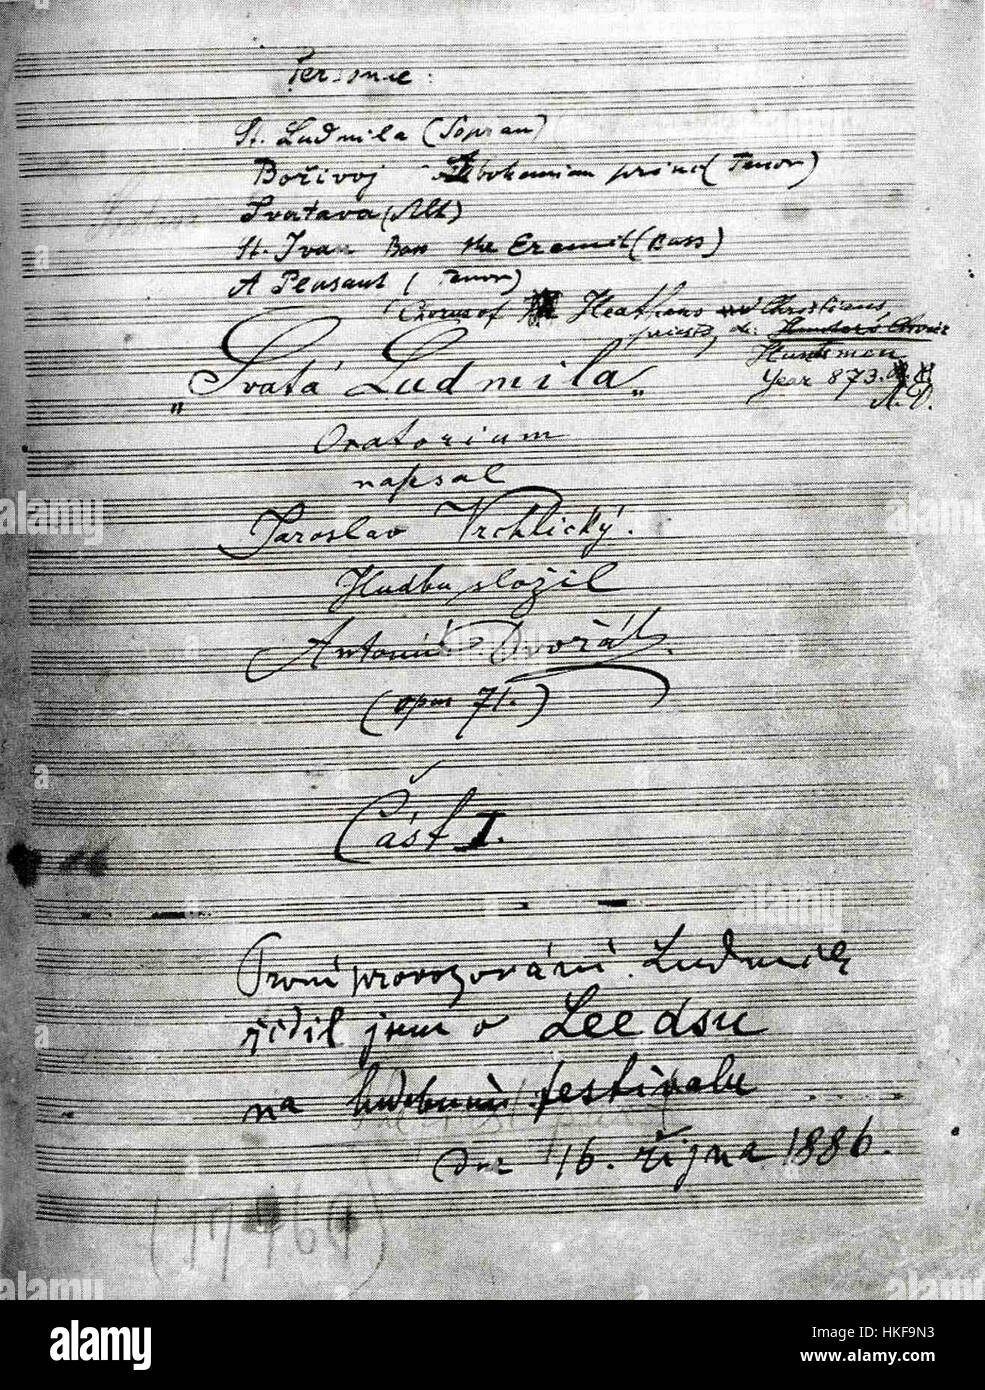 Personae:
St. Ludmila (Sopran)
Bořivoj A bohemian prince (Tenor)
Svatava (Alt)
St. Ivan Bass the Eremit (Bass)
A Peasant (Tenor)
Chorus of Heathens and Christians,
priests, Hunters Chorus
Huntsmen
Year 873.
A.D.
„Svatá Ludmila„
Oratorium
napsal
Jaroslav Vrchlický.
Hudbu složil
Antonín Dvořák.
(opus 71.)
Část I.
První provozování Ludmily
řídil jsem v Leedsu
na hudebním festivalu
dne 16. října 1886.
alamy
a
alamy
HKF9N3
www.alamy.com